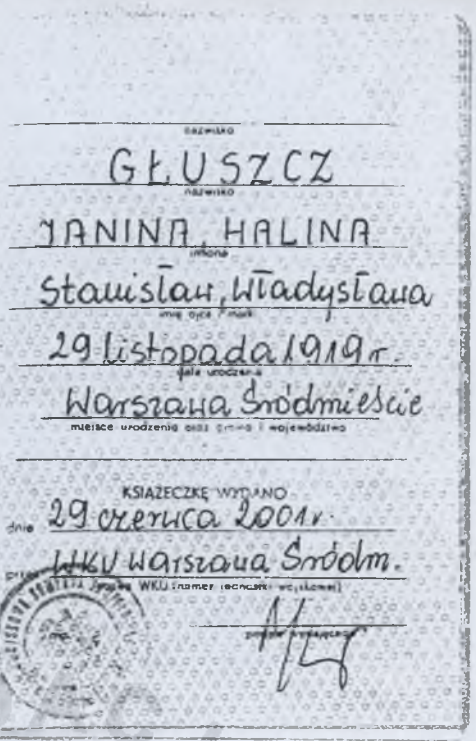 nazwisko
GŁUSZCZ
nazwisko
JANINA, HALINA
imiona
Stanisław, Władysława
imię ojca i matki
29 listopada 1919 r.
data urodzenia
Warszawa Śródmieście
miejsce urodzenia oraz gmina i województwo
KSIĄŻECZKĘ WYDANO
dnia 29 czerwca 2001 r.
przez WKU Warszawa Śródm.
WKU (numer jednostki wojskowej)